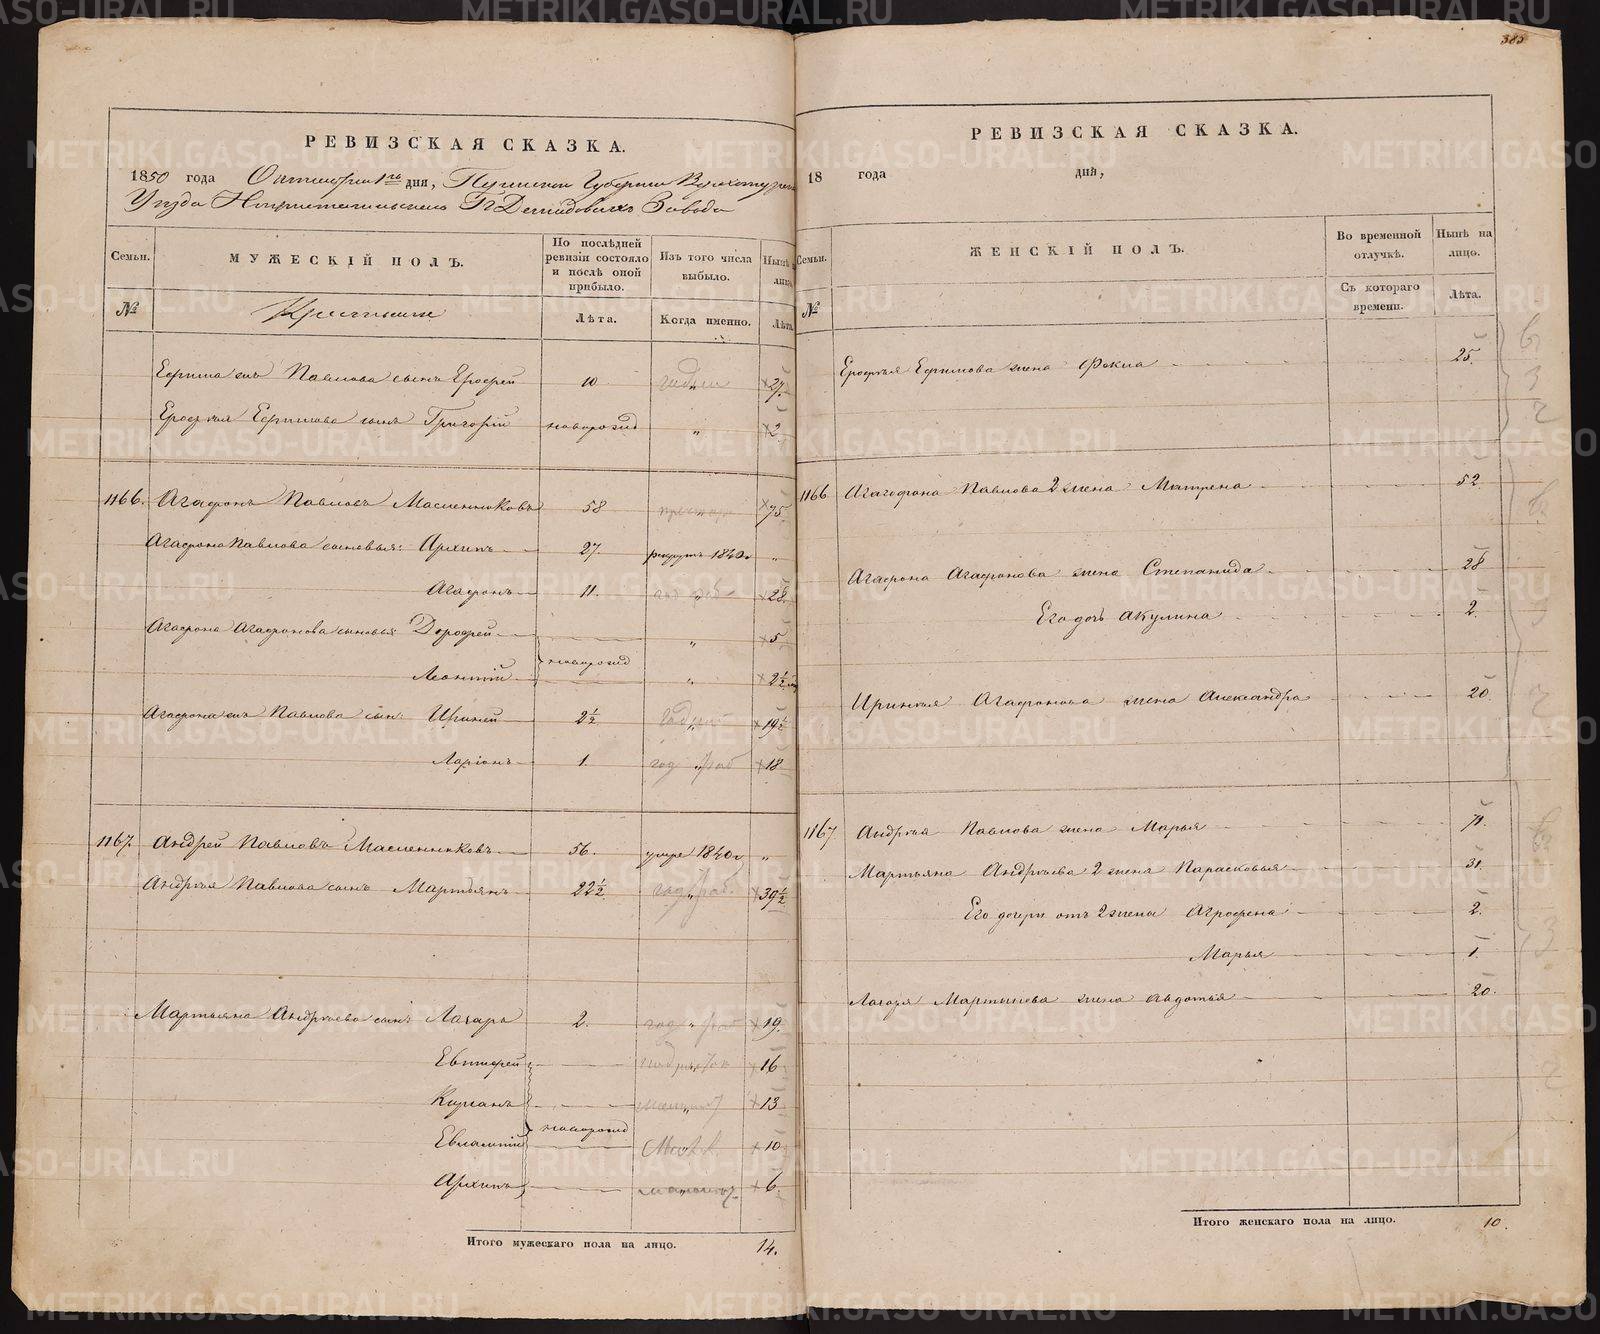 383
РЕВИЗСКАЯ СКАЗКА.
1850 года Октября 1го дня, Пермской Губернии Верхотурскаго
Уѣзда Гг Демидовыхъ Завода
Семьи.
МУЖЕСКІЙ ПОЛЪ.
По послѣдней ревизіи состояло и послѣ оной прибыло.
Изъ того числа выбыло.
Нынѣ
№
Крестьяне
Лѣта.
Когда именно.
Лѣта.
Ефима Павлова сынъ Ерофей 10 27.
Ерофея Ефимова сынъ Григорій новорожд „ 2.
1166. Агафонъ Павловъ Масленниковъ 58 75.
Агафона Павлова сыновья: Архипъ 27. рекрутъ 1840 „
Агафонъ 11. 28.
Агафона Агафонова сыновья Дорофей „ 5
новорожд
Леонтій „ 2½
Агафона Павлова сын: Ириней 2½ 19½
Ларіонъ 1. 18
1167. Андрей Павловъ Масленниковъ 56. умре 1840 „
Андрея Павлова сынъ Мартьянъ 22½ 39½
Мартьяна Андреева сынъ Лазарь 2. 19.
Евтифей 16
Киръянъ 13
новорожд
Евлампій 10
Архипъ 6.
Итого мужескаго пола на лицо. 14.
РЕВИЗСКАЯ СКАЗКА.
18 года дня,
Семьи.
ЖЕНСКІЙ ПОЛЪ.
Во временной отлучкѣ.
Нынѣ на лицо.
№
Съ котораго времени.
Лѣта.
Ерофея Ефимова жена Фокла 25.
1166 Агафона Павлова 2 жена Матрена 52.
Агафона Агафонова жена Степанида 28
Его дочь Акулина 2.
Иринея Агафонова жена Александра 20
1167. Андрея Павлова жена Марья 71.
Мартьяна Андреева 2 жена Парасковья 31.
Его дочери отъ 2 жена Агрофена 2.
Марья 1.
Лазаря Мартьянова жена Авдотья 20.
Итого женскаго пола на лицо. 10.
METRIKI.GASO-URAL.RU